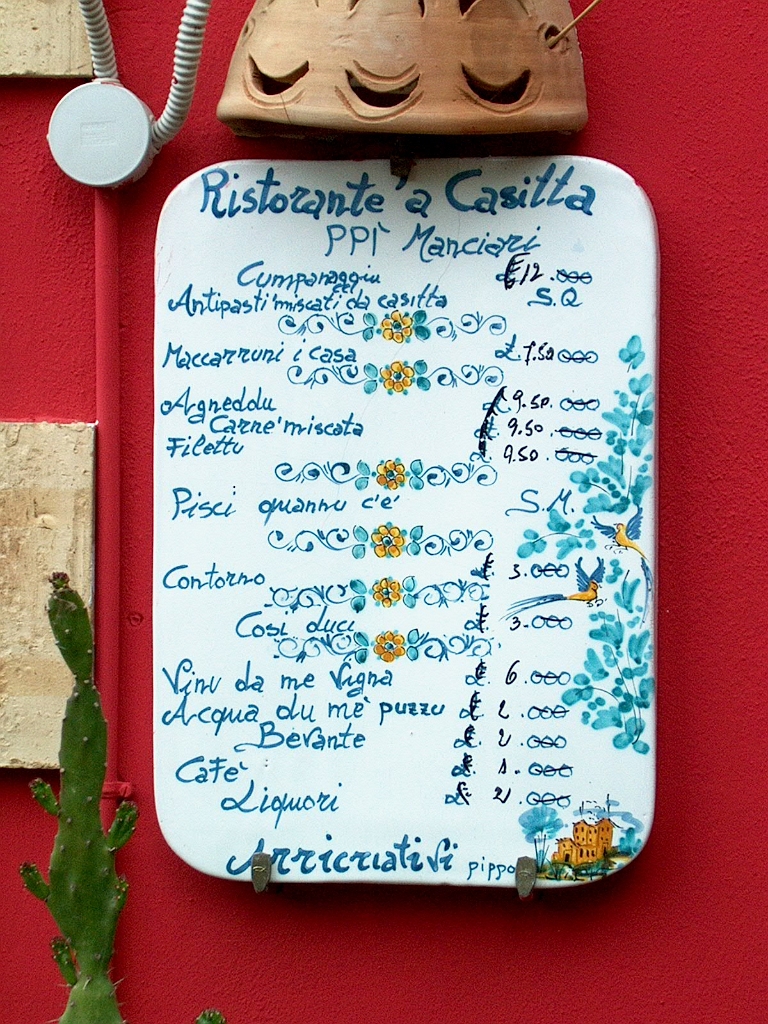 Ristorante 'a Casitta
PPÌ Manciari
Cumpanaggiu £ 12.000
Antipasti miscati da casitta S.Q
Maccarruni i casa £. 7.50 000
Agneddu £ 9.50. 000
Carne miscata £. 9.50 000
Filettu £. 9.50 000
Pisci quannu c'è S.M.
Contorno £. 3.000
Cosi duci £. 3.000
Vinu da me vigna £. 6.000
Acqua du mè puzzu £. 2.000
Bevante £. 2.000
Cafè £. 1.000
Liquori £. 2.000
Arricriativi pippo